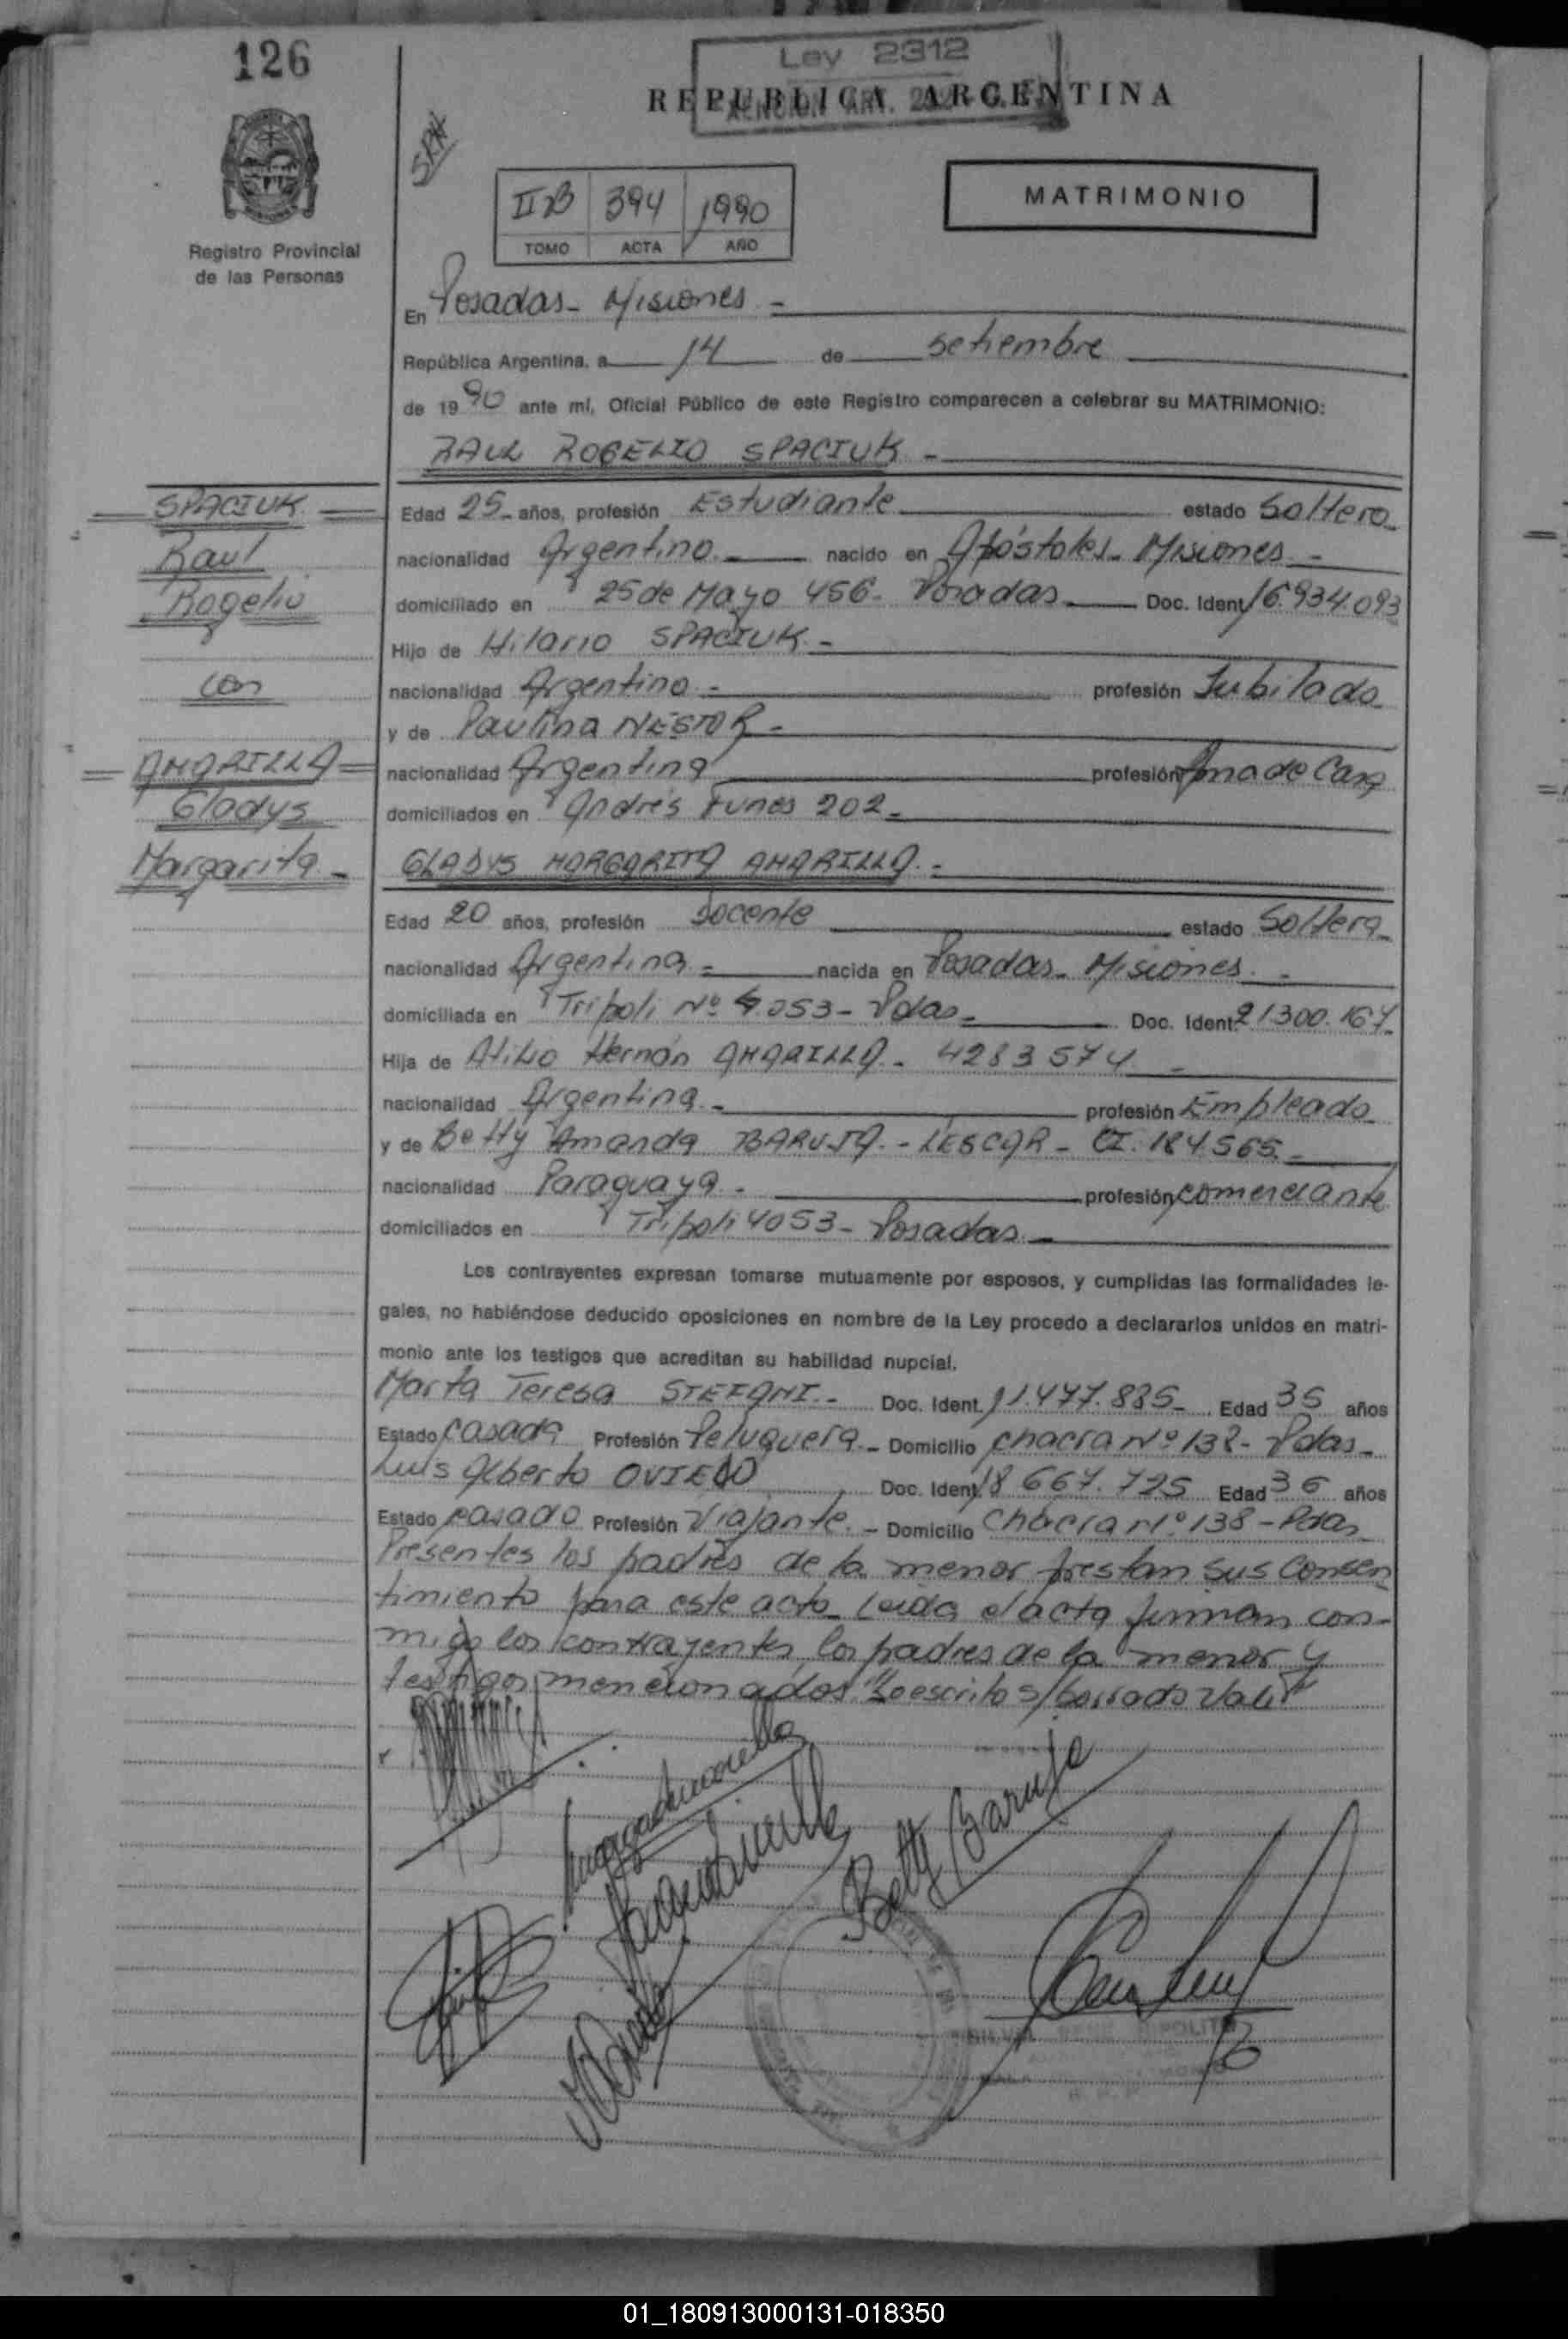 126
Ley 2312
REPUBLICA ARGENTINA
Registro Provincial
de las Personas
IIB 394 1990
TOMO ACTA AÑO
MATRIMONIO
En Posadas - Misiones -
República Argentina, a 14 de setiembre
de 1990 ante mí, Oficial Público de este Registro comparecen a celebrar su MATRIMONIO:
RAUL ROGELIO SPACIUK -
SPACIUK
Raul
Rogelio
con
AMARILLA
Gladys
Margarita -
Edad 25 - años, profesión Estudiante estado Soltero -
nacionalidad Argentino - nacido en Apóstoles - Misiones -
domiciliado en 25 de Mayo 456 - Posadas - Doc. Ident. 16.934.093
Hijo de Hilario SPACIUK -
nacionalidad Argentino - profesión Jubilado
y de Paulina NESTOR -
nacionalidad Argentina profesión Ama de Casa
domiciliados en Andrés Funes 202 -
GLADYS MARGARITA AMARILLA. -
Edad 20 años, profesión Docente estado Soltera -
nacionalidad Argentina - nacida en Posadas - Misiones. -
domiciliada en Tripoli Nº 4.053 - Pdas - Doc. Ident. 21.300.167 -
Hija de Atilio Hernán AMARILLA. - 4283574. -
nacionalidad Argentina - profesión Empleado
y de Betty Amanda BARUJA. - LESCAR - CI. 184.565. -
nacionalidad Paraguaya - profesión comerciante
domiciliados en Tripoli 4053 - Posadas. -
Los contrayentes expresan tomarse mutuamente por esposos, y cumplidas las formalidades le-
gales, no habiéndose deducido oposiciones en nombre de la Ley procedo a declararlos unidos en matri-
monio ante los testigos que acreditan su habilidad nupcial.
Marta Teresa STEFANI. - Doc. Ident. 11.477.835 - Edad 35 años
Estado casada Profesión Peluquera. - Domicilio chacra Nº 138 - Pdas -
Luis Alberto OVIEDO Doc. Ident. 18 667.725 Edad 36 años
Estado casado Profesión Viajante. - Domicilio Chacra Nº 138 - Pdas
Presentes los padres de la menor prestan sus consen
timiento para este acto. Leída el acta firman con-
migo los contrayentes, los padres de la menor y
testigos mencionados. Lo escrito s/borrado Vale
Betty Baruja
01_180913000131-018350